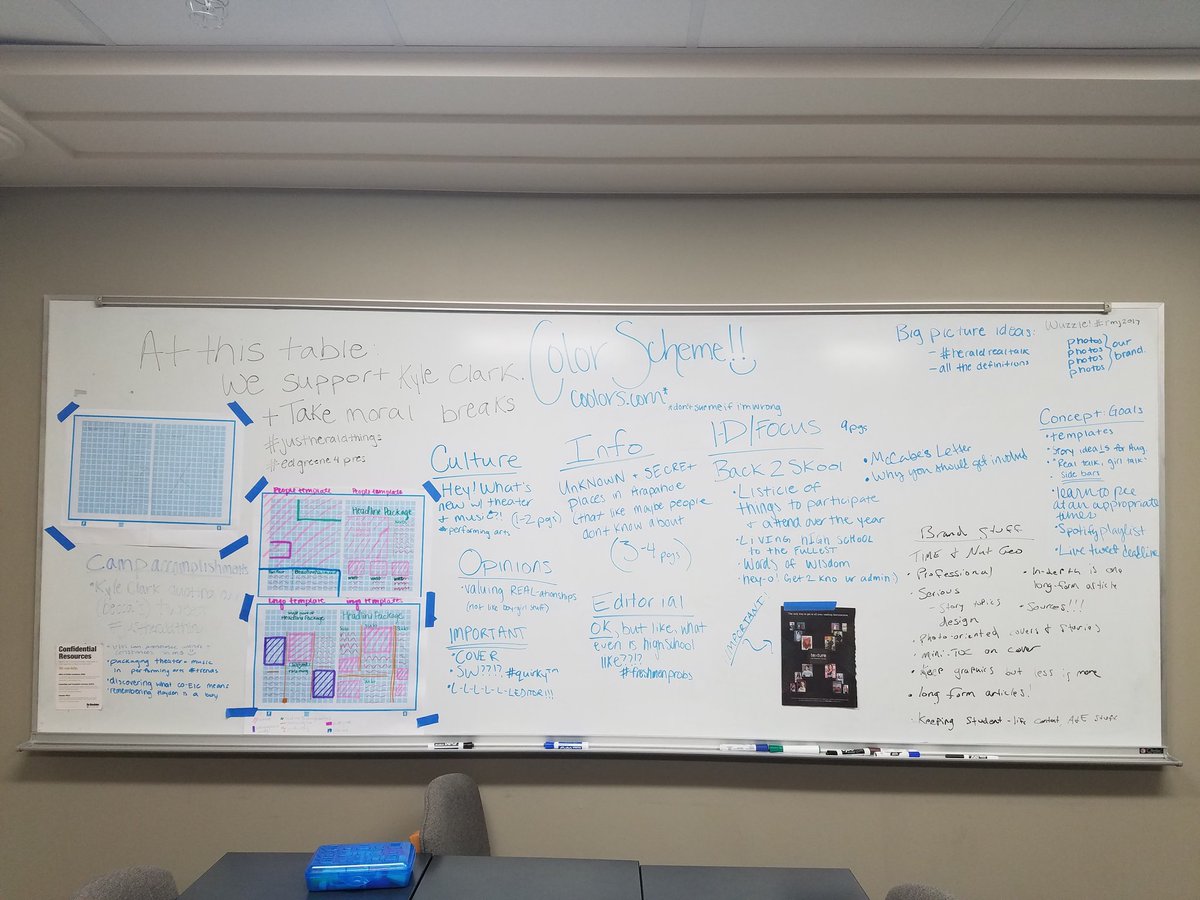 At this table:
We support Kyle Clark.
+ Take moral breaks
#justheraldthings
#edgreene4pres
Color Scheme!!
coolors.com*
*don't sue me if i'm wrong
Big picture ideas:
- #heraldrealtalk
- all the definitions
Wuzzle! #rmj2017
photos
photos
photos
photos
our
brand.
People template
People template
Headline Package
Logo template
Logo template
Headline Package
Headline Package
Confidential
Resources
•Kyle Clark quoting
• packaging theater + music
in performing arts #trends
• discovering what co-EIC means
• remembering Hayden is a boy
Culture
Hey! What's
new w/ theater
+ music?! (1-2 pgs)
* performing arts
Opinions
•valuing REAL-ationships
(not like boy-girl stuff)
IMPORTANT
•COVER
•SW??!? #quirky™
•L-L-L-L-LEDITOR!!!
Info
UNKNOWN + SECRET
places in Arapahoe
(that like maybe people
don't know about
(3-4 pgs)
Editorial
OK, but like, what
even is high school
like??!?
#freshmenprobs
ID/FOCUS 9pgs
Back 2 Skool
• Listicle of
things to participate
+ attend over the year
• LIVING HIGH SCHOOL
to the FULLEST
• Words of Wisdom
• Hey-o! Get 2 kno ur admin)
• McCabe's Letter
• Why you should get involved
IMPORTANT!
texture
Brand Stuff
TIME & Nat Geo
• Professional
• Serious
- Story topics
design
• Photo-oriented covers & stories
• Mini-TOC on cover
• Keep graphics but less is more
• long form articles!
• Keeping student-life content A&E stuff
• In-depth is one
long-form article
• Sources!!!
Concept: Goals
• templates
• Story ideas for Aug.
• "Real talk, girl talk"
side bars
• learn to pee
at an appropriate
times
• Spotify playlist
• Live tweet deadline